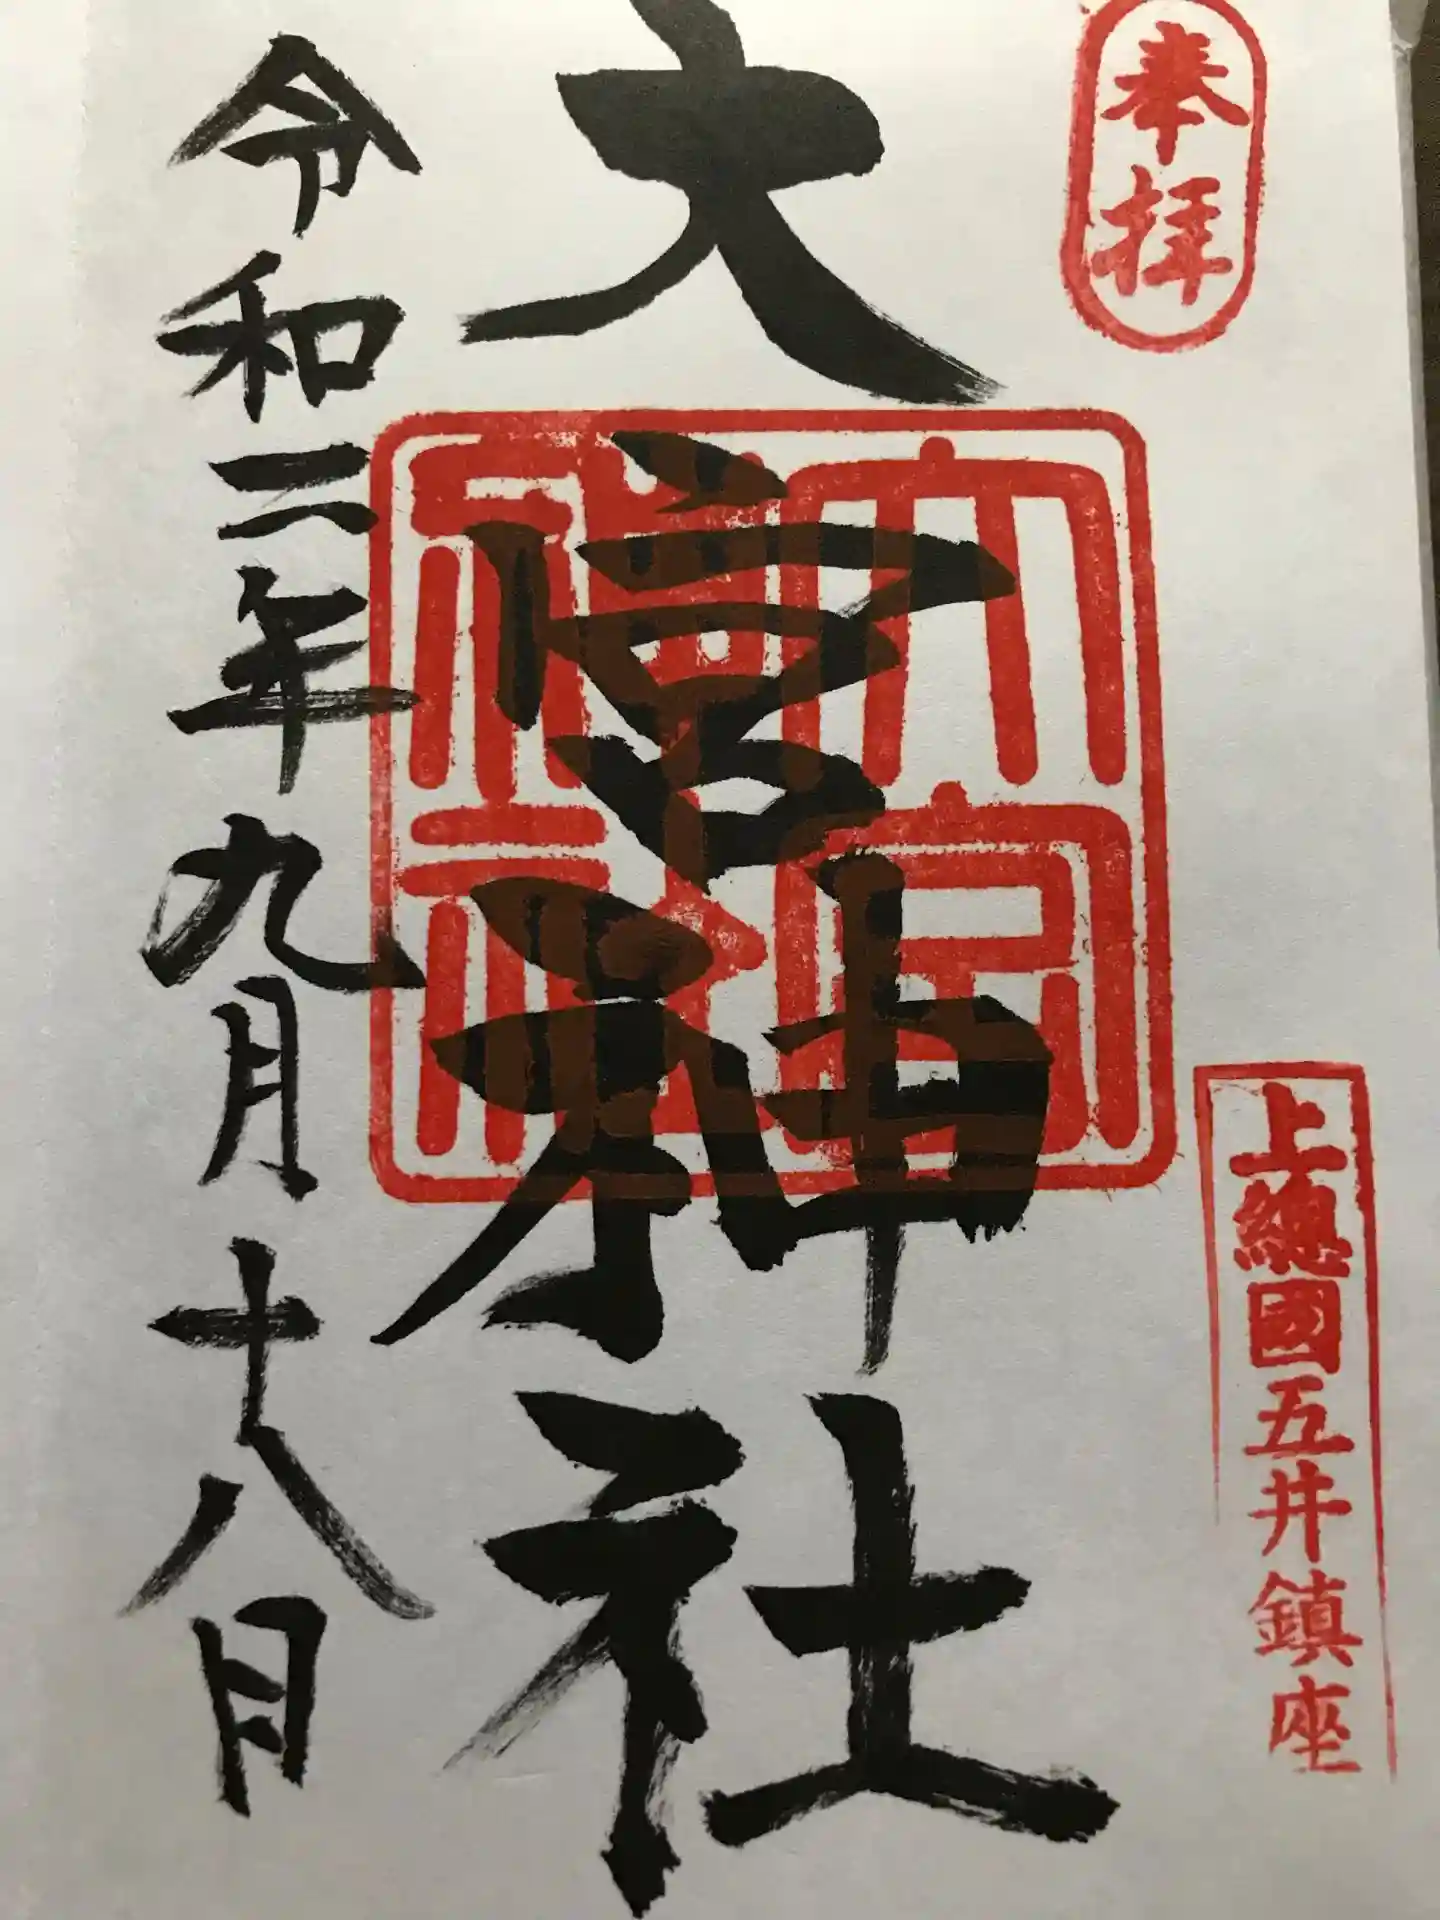 奉拝
上總國五井鎮座
大宮神社
大宮神社
令和二年九月十八日